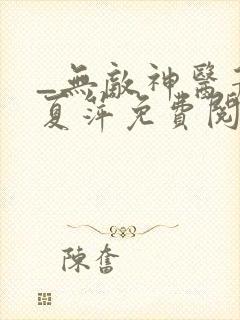 _無敵神醫
夏萍免費閱
陳奮